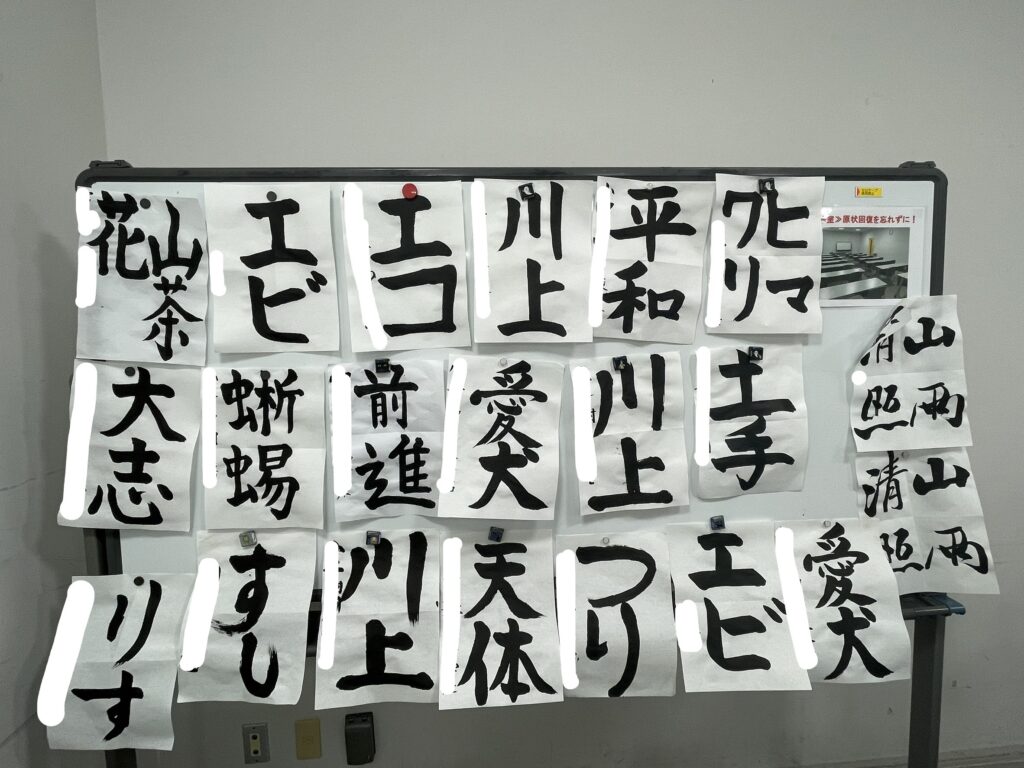 山茶
花
エビ
エコ
川上
平和
ヒマ
ワリ
室≫原状回復を忘れずに！
山雨
清照
大志
蜥蜴
前進
愛犬
川上
土手
山雨
清照
りす
すし
川上
天体
つり
エビ
愛犬